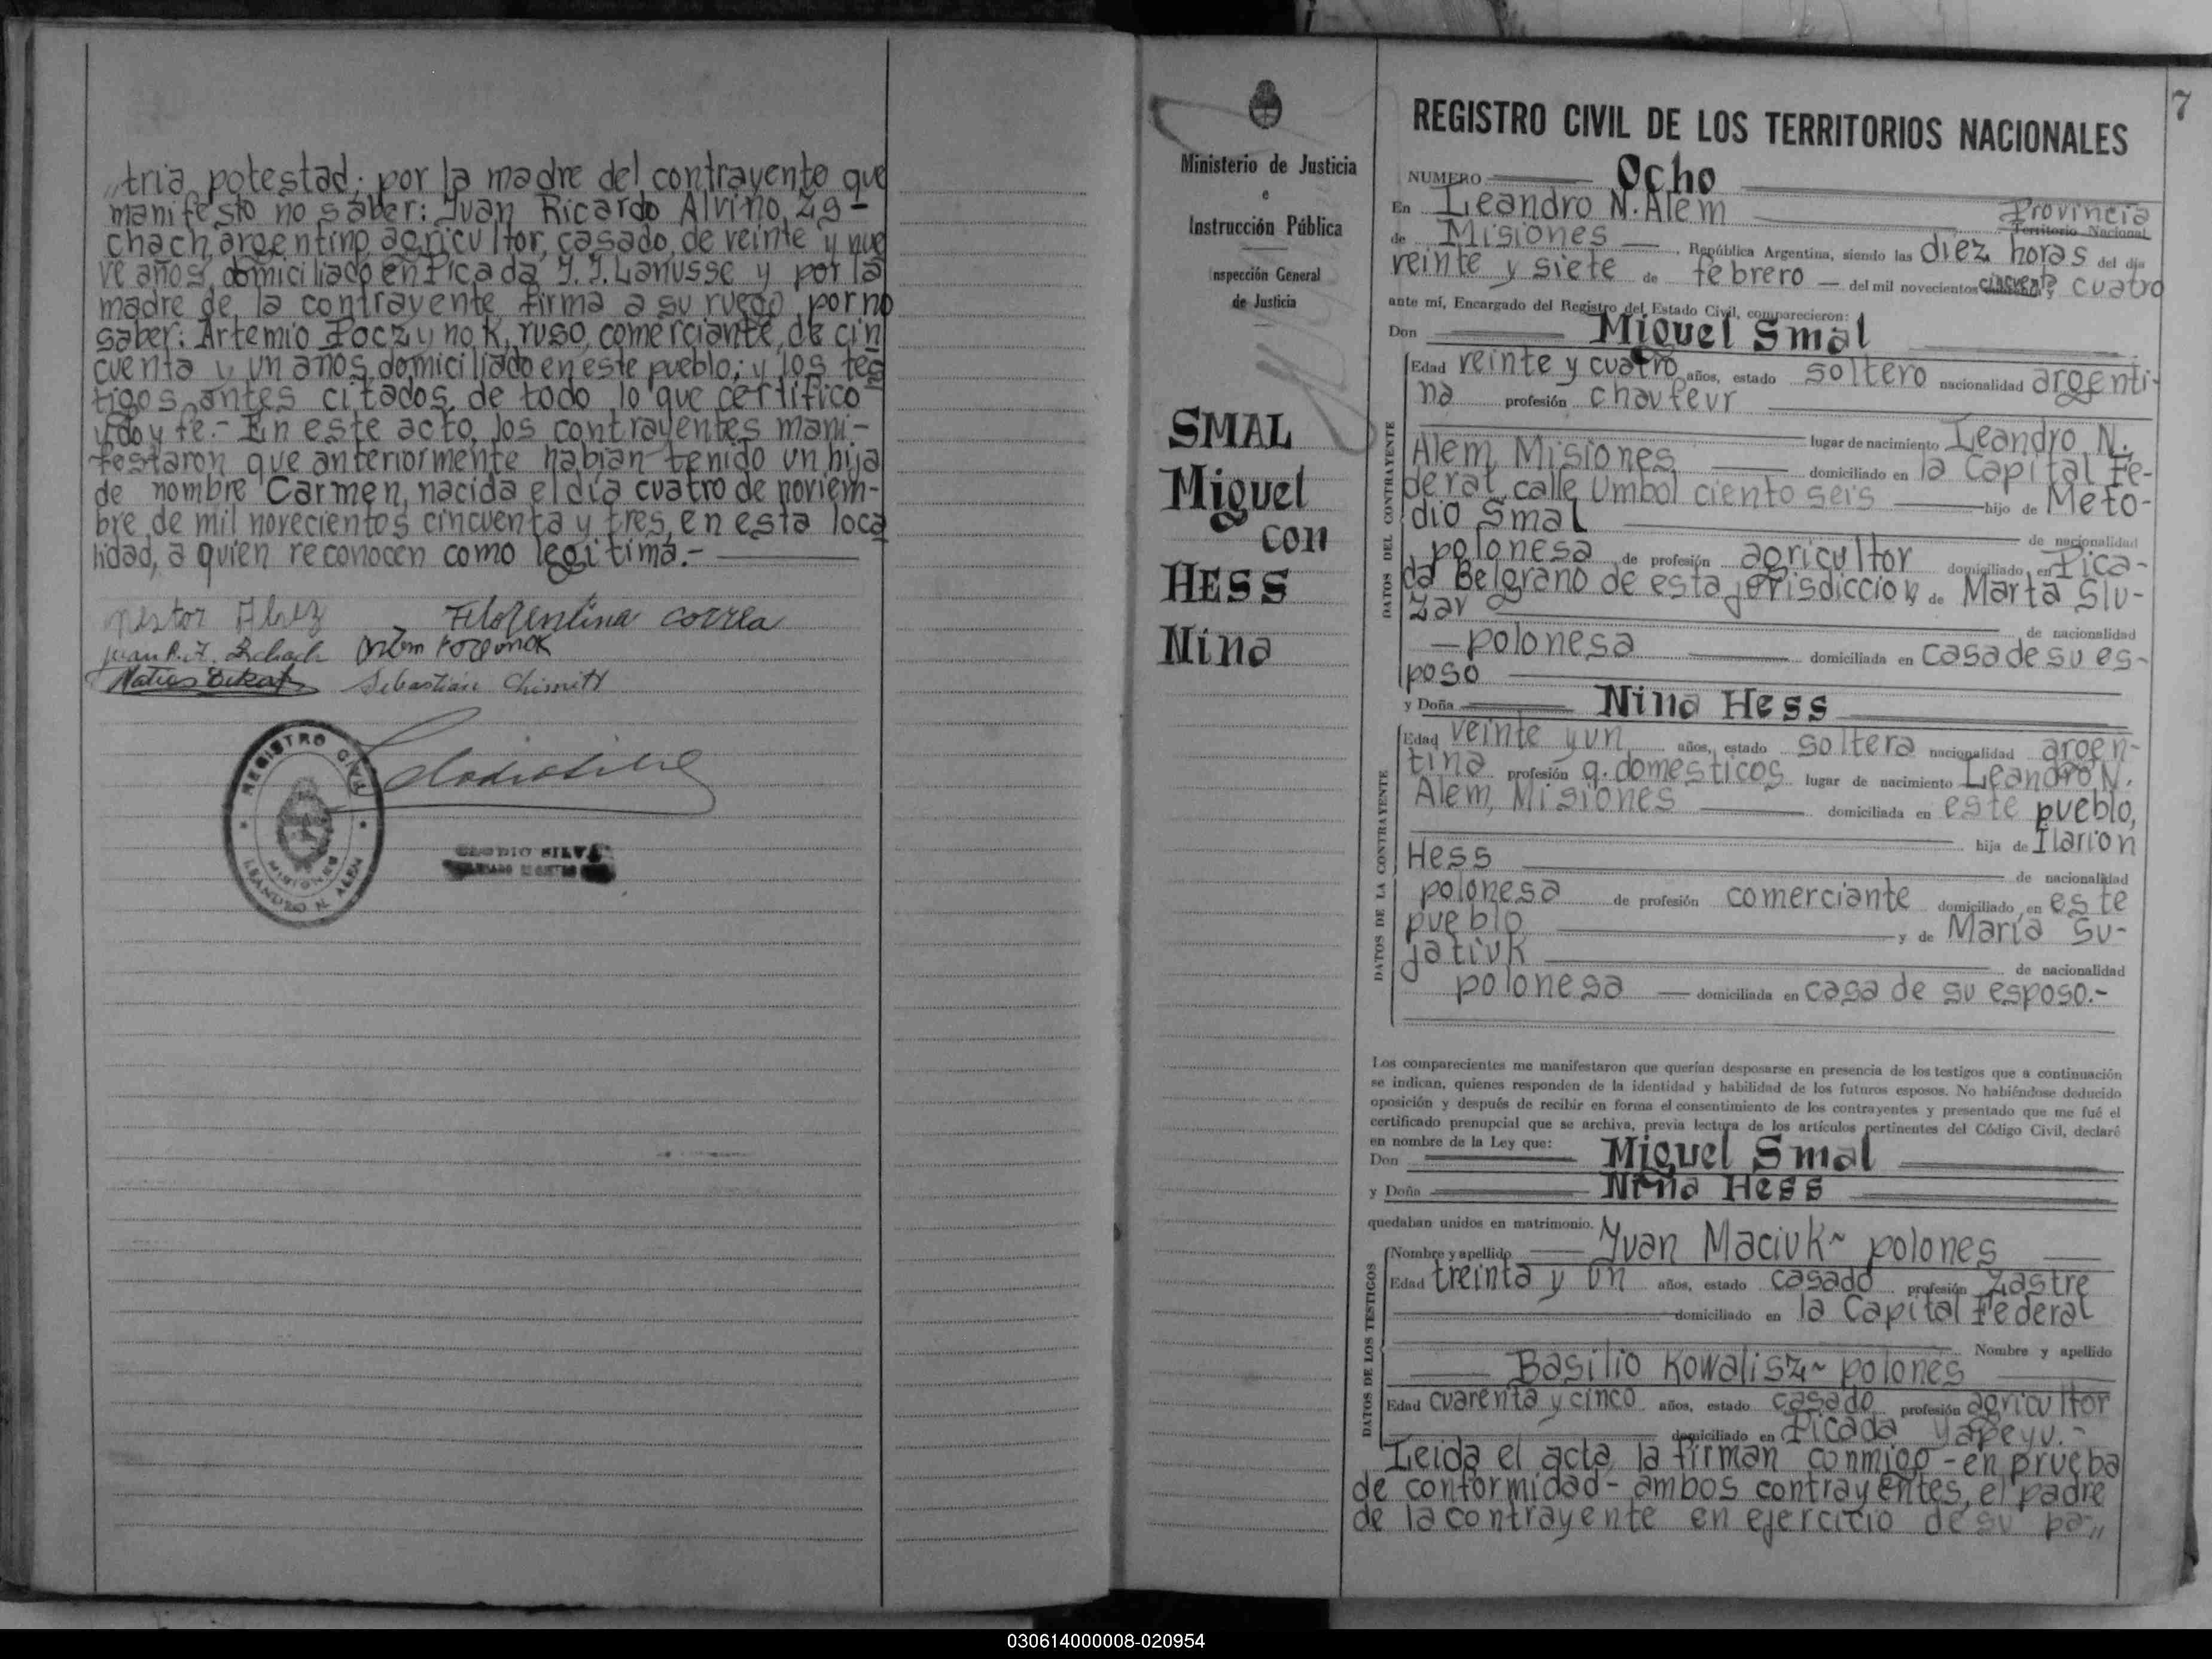 „tria potestad; por la madre del contrayente que
manifesto no saber: Juan Ricardo Alvino Zs-
chach, argentino, agricultor, casado, de veinte y nue
ve años, domiciliado en Picada J. J. Lanusse y por la
madre de la contrayente firma a su ruego, por no
saber: Artemio Poczynok, ruso, comerciante, de cin
cuenta y un años, domiciliado en este pueblo; y los tes
tigos antes citados, de todo lo que certifico
y doy fe.- En este acto, los contrayentes mani-
festaron que anteriormente habian tenido un hija
de nombre Carmen, nacida el día cuatro de noviem-
bre de mil novecientos cincuenta y tres, en esta loca
lidad, a quien reconocen como legitima.-
Nestor
Florentina Correa
Juan R. A. Zschach
Sebastian Chimitt
REGISTRO CIVIL
MISIONES
LEANDRO N. ALEM
CLODIO SILVA
Ministerio de Justicia
e
Instrucción Pública
Inspección General
de Justicia
SMAL
Miguel
con
HESS
Nina
7
REGISTRO CIVIL DE LOS TERRITORIOS NACIONALES
NUMERO Ocho
En Leandro N. Alem Provincia
Territorio Nacional
de Misiones, República Argentina, siendo las diez horas del día
veinte y siete de febrero del mil novecientos cincuenta y cuatro
ante mí, Encargado del Registro del Estado Civil, comparecieron:
Don Miguel Smal
DATOS DEL CONTRAYENTE
Edad veinte y cuatro años, estado soltero nacionalidad argenti-
na profesión chaufeur
lugar de nacimiento Leandro N.
Alem, Misiones domiciliado en la Capital Fe-
deral, calle Umbol ciento seis hijo de Meto-
dio Smal
de nacionalidad
polonesa de profesión agricultor domiciliado en Pica-
da Belgrano de esta jurisdiccion y de Marta Slu-
zar
de nacionalidad
polonesa domiciliada en casa de su es-
poso
y Doña Nina Hess
DATOS DE LA CONTRAYENTE
Edad veinte y un años, estado soltera nacionalidad argen-
tina profesión q. domesticos lugar de nacimiento Leandro N.
Alem, Misiones domiciliada en este pueblo,
hija de Ilarion
Hess
de nacionalidad
polonesa de profesión comerciante domiciliado en este
pueblo y de Maria Su-
jatiuk
de nacionalidad
polonesa domiciliada en casa de su esposo.-
Los comparecientes me manifestaron que querían desposarse en presencia de los testigos que a continuación
se indican, quienes responden de la identidad y habilidad de los futuros esposos. No habiéndose deducido
oposición y después de recibir en forma el consentimiento de los contrayentes y presentado que me fué el
certificado prenupcial que se archiva, previa lectura de los artículos pertinentes del Código Civil, declaré
en nombre de la Ley que:
Don Miguel Smal
y Doña Nina Hess
quedaban unidos en matrimonio.
DATOS DE LOS TESTIGOS
Nombre y apellido Juan Maciuk~ polones
Edad treinta y un años, estado casado profesión Zastre
domiciliado en la Capital Federal
Nombre y apellido
Basilio Kowalisz~ polonés
Edad cuarenta y cinco años, estado casado profesión agricultor
domiciliado en Picada Yapeyu.-
Leida el acta, la firman conmigo - en prueba
de conformidad - ambos contrayentes, el padre
de la contrayente en ejercicio de su pa„
030614000008-020954